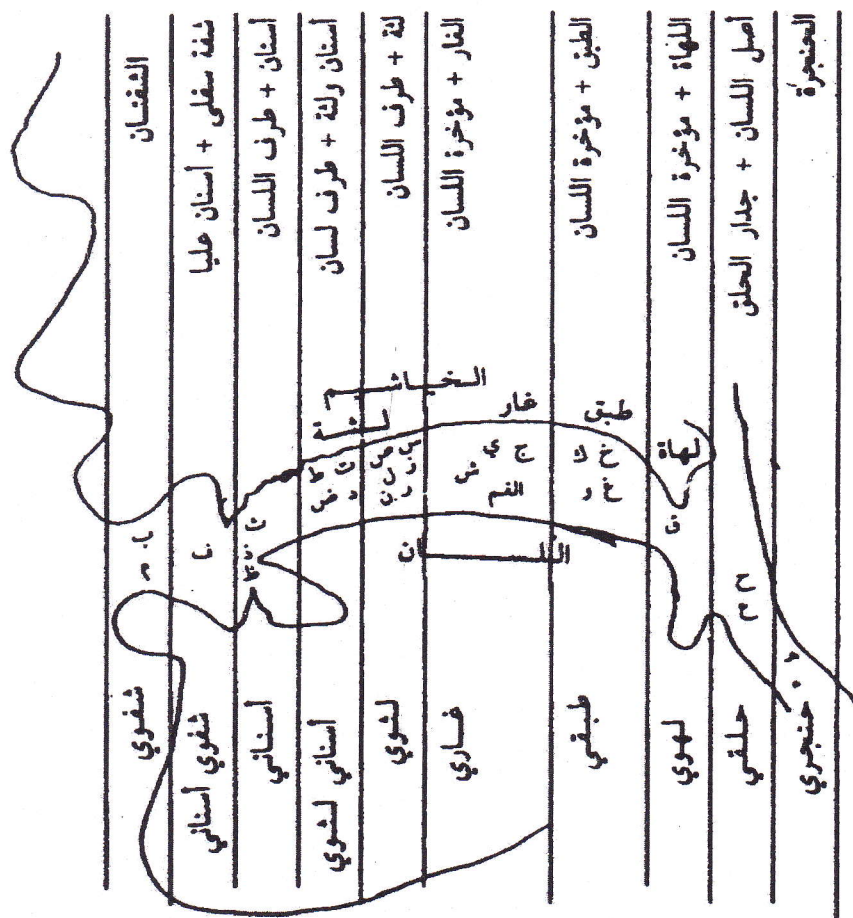 الشفتان
شفة سفلى + أسنان عليا
أسنان + طرف اللسان
أسنان ولثة + طرف لسان
لثة + طرف اللسان
الغار + مؤخرة اللسان
الطبق + مؤخرة اللسان
اللهاة + مؤخرة اللسان
أصل اللسان + جدار الحلق
الحنجرة
الخياشيم
لثة
غار
طبق
لهاة
ج ي
ش
الفم
خ ك
غ و
ق
ف
ب م
ع ح
اللسان
شفوي
شفوي أسناني
أسناني
أسناني لثوي
لثوي
غاري
طبقي
لهوي
حلقي
حنجري